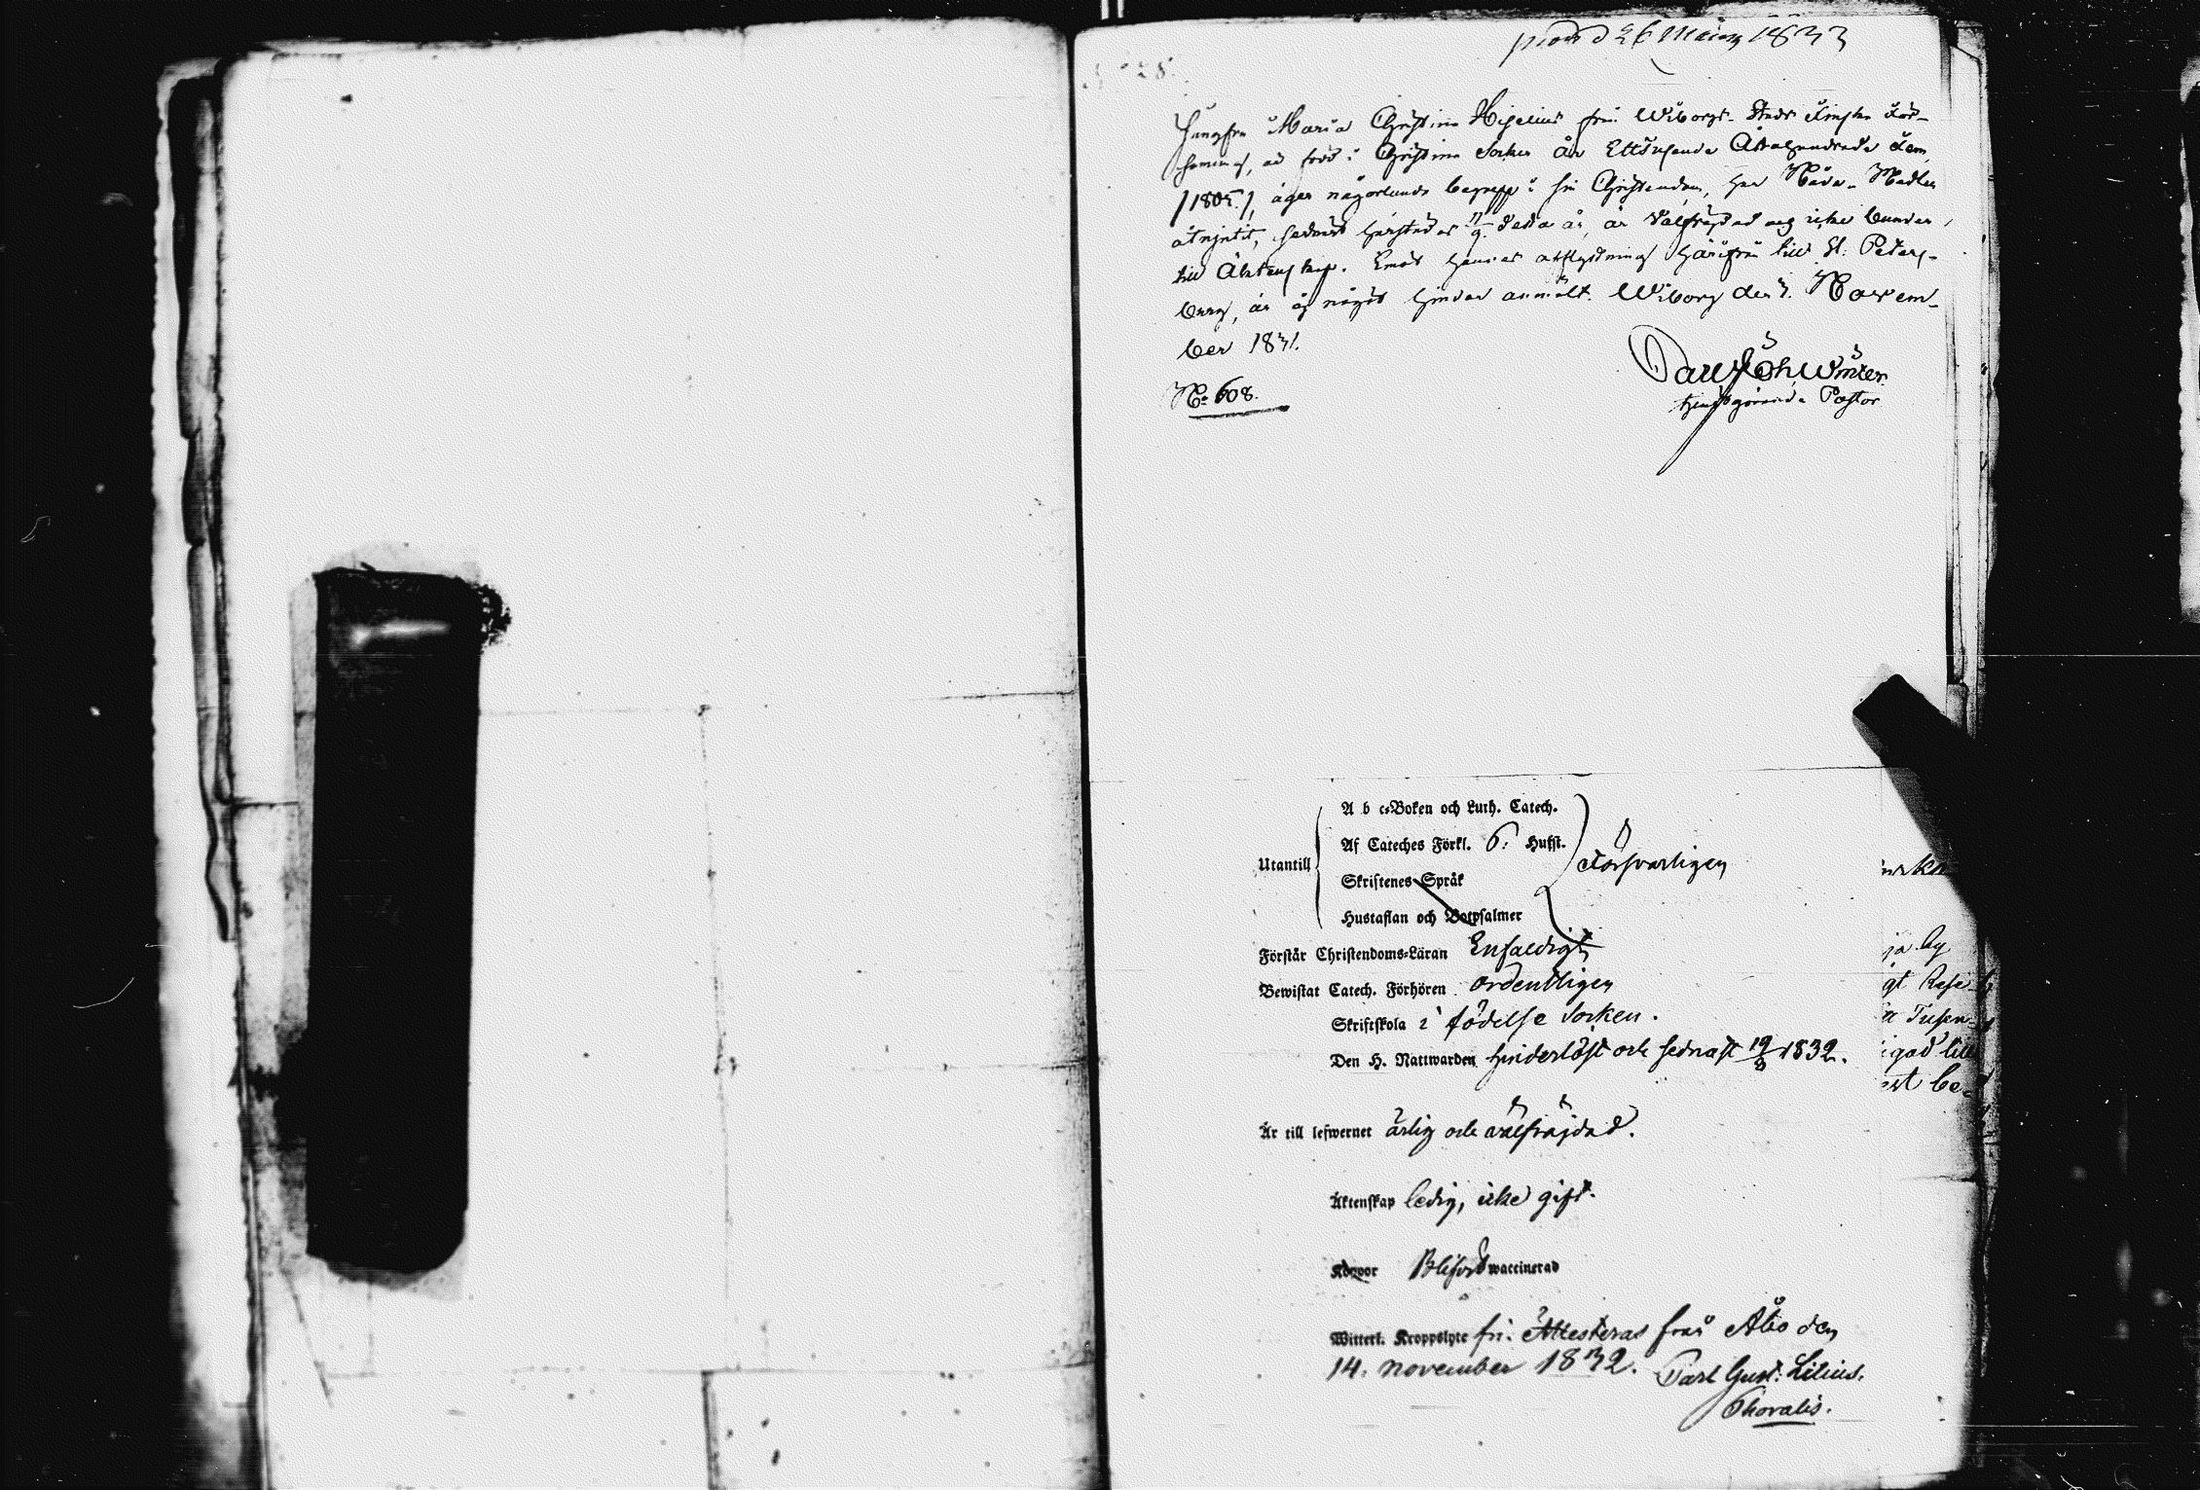 prod d 26 Mars 1833
N:o 28.
Jungfru Maria Christina Higelius från Wiborgs Stads Finska För-
samling, är född i Christina Socken år Ettusende Åttahundrade Fem
/1805./, äger någorlunda begrepp i sin Christendom, har Nåde-Medlen
åtnjutit, sednast härstädes detta år, är välfräjdad och icke bunden
till Äktenskap. Emot hennes afflyttning härifrån till St: Peters-
burg, är ej något hinder anmält. Wiborg den 7. Novem-
ber 1831.
Joh Winter
N:o 608.
tjenstgörande Pastor
A b c-Boken och Luth. Catech.
Af Cateches Förkl. 6: Hufst.
Utantill Försvarligen
Skriftenes Språk
Hustaflan och Botpsalmer
Förstår Christendoms-Läran Enfaldigt
Bewistat Catech. Förhören ordentligen
Skriftskola i födelse Socken.
Den H. Nattwarden hinderlöst och sednast 19/8 1832.
Är till lefwernet ärlig och välfräjdad.
Äktenskap ledig, icke gift.
Koppor Blifvit waccinerad
Witterl. Kroppslyte fri. Attesteras från Åbo den
14. november 1832. Carl Gust: Lilius.